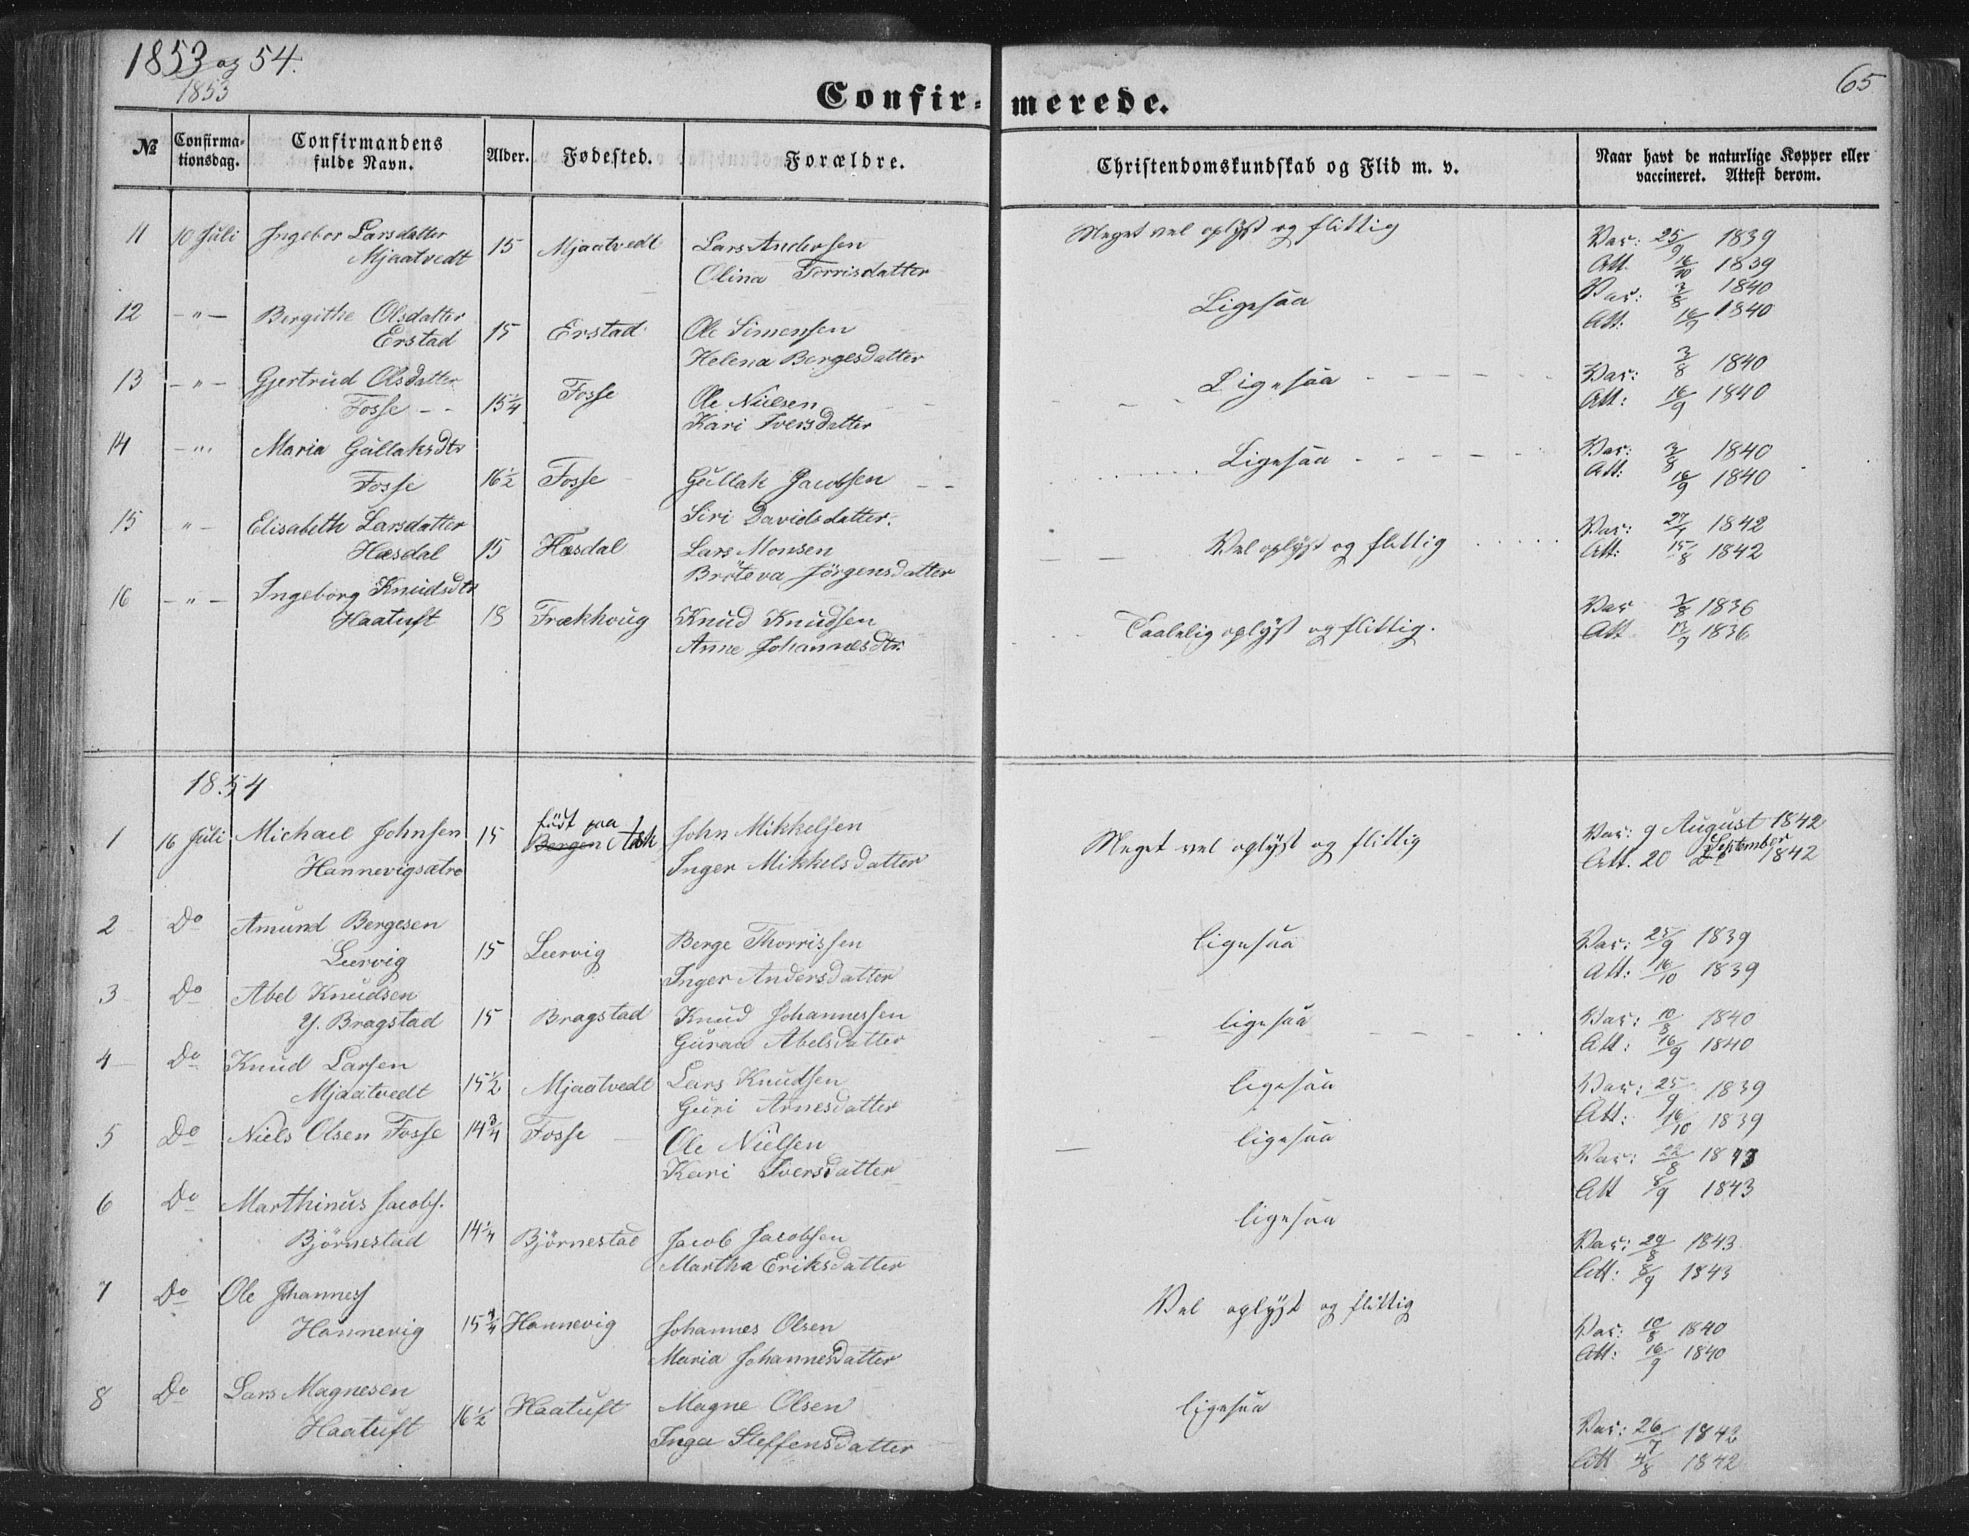 1853 og 54.
1853
65
Confir- merede.
No
Confirma-
tionsdag.
Confirmandens
fulde Navn.
Alder.
Fødested.
Forældre.
Christendomskundskab og Flid m. v.
Naar havt de naturlige Kopper eller
vaccineret. Attest derom.
11 10 Juli Ingebor Larsdatter 15 Mjaatvedt Lars Andersen Meget vel oplyst og flittig Vac: 25/9 1839
Mjaatvedt Olina Torrisdatter Att. 16/10 1839
12 -"- Bergithe Olsdatter 15 Erstad Ole Simensen Ligesaa Vac: 3/8 1840
Erstad Helena Bergesdatter Att. 16/9 1840
13 -"- Gjertrud Olsdatter 15 1/4 Fosse Ole Nielsen Ligesaa Vac: 3/8 1840
Fosse Kari Iversdatter Att: 16/9 1840
14 -"- Maria Gullaksdtr 16 1/2 Fosse Gullak Jacobsen Ligesaa Vac: 3/8 1840
Fosse Siri Davidsdatter. Att: 16/9 1840
15 "- Elisabeth Larsdatter 15 Hæsdal Lars Monsen Vel oplyst og flittig Vac: 27/7 1842
Hæsdal Bröteva Jörgensdatter Att: 15/8 1842
16 -"- Ingeborg Knudsdtr 18 Frækhoug Knud Knudsen Taalelig oplyst og flittig. Vac 1836
Haatuft Anne Johannesdtr. Att 13/9 1836
1854
1 16 Juli Michael Johnsen 15 födt paa Bergen Ask John Mikkelsen Meget vel oplyst og flittig Vac: 9 August 1842
Hannevigsætre Inger Mikkelsdatter Att. 20 September 1842
2 Do Amund Bergesen 15 Leervig Berge Thorrissen ligesaa Vac: 25/9 1839
Leervig Inger Andersdatter Att: 16/10 1839
3 Do Abel Knudsen 15 Bragstad Knud Johannessen ligesaa Vac: 10/8 1840
Y. Bragstad Guraa Abelsdatter Att: 16/9 1840
4 Do Knud Larsen 15 1/2 Mjaatvedt Lars Knudsen ligesaa Vac: 25/9 1839
Mjaatvedt Guri Arnesdatter Att: 16/10 1839
5 Do Niels Olsen Fosse 14 3/4 Fosse Ole Nielsen ligesaa Vac: 22/8 1843
Kari Iversdatter Att 8/9 1843
6 Do Marthinus Jacobs. 14 1/4 Björnestad Jacob Jacobsen ligesaa Vac: 29/8 1843
Björnestad Martha Eriksdatter Att: 8/9 1843
7 Do Ole Johanness 15 3/4 Hannevig Johannes Olsen Vel oplyst og flittig Vac: 10/8 1840
Hannevig Maria Johannesdatter Att: 16/9 1840
8 Do Lars Magnesen 16 1/2 Haatuft Magne Olsen ligesaa Vac: 26/7 1842
Haatuft Inga Steffensdatter Att 4/8 1842